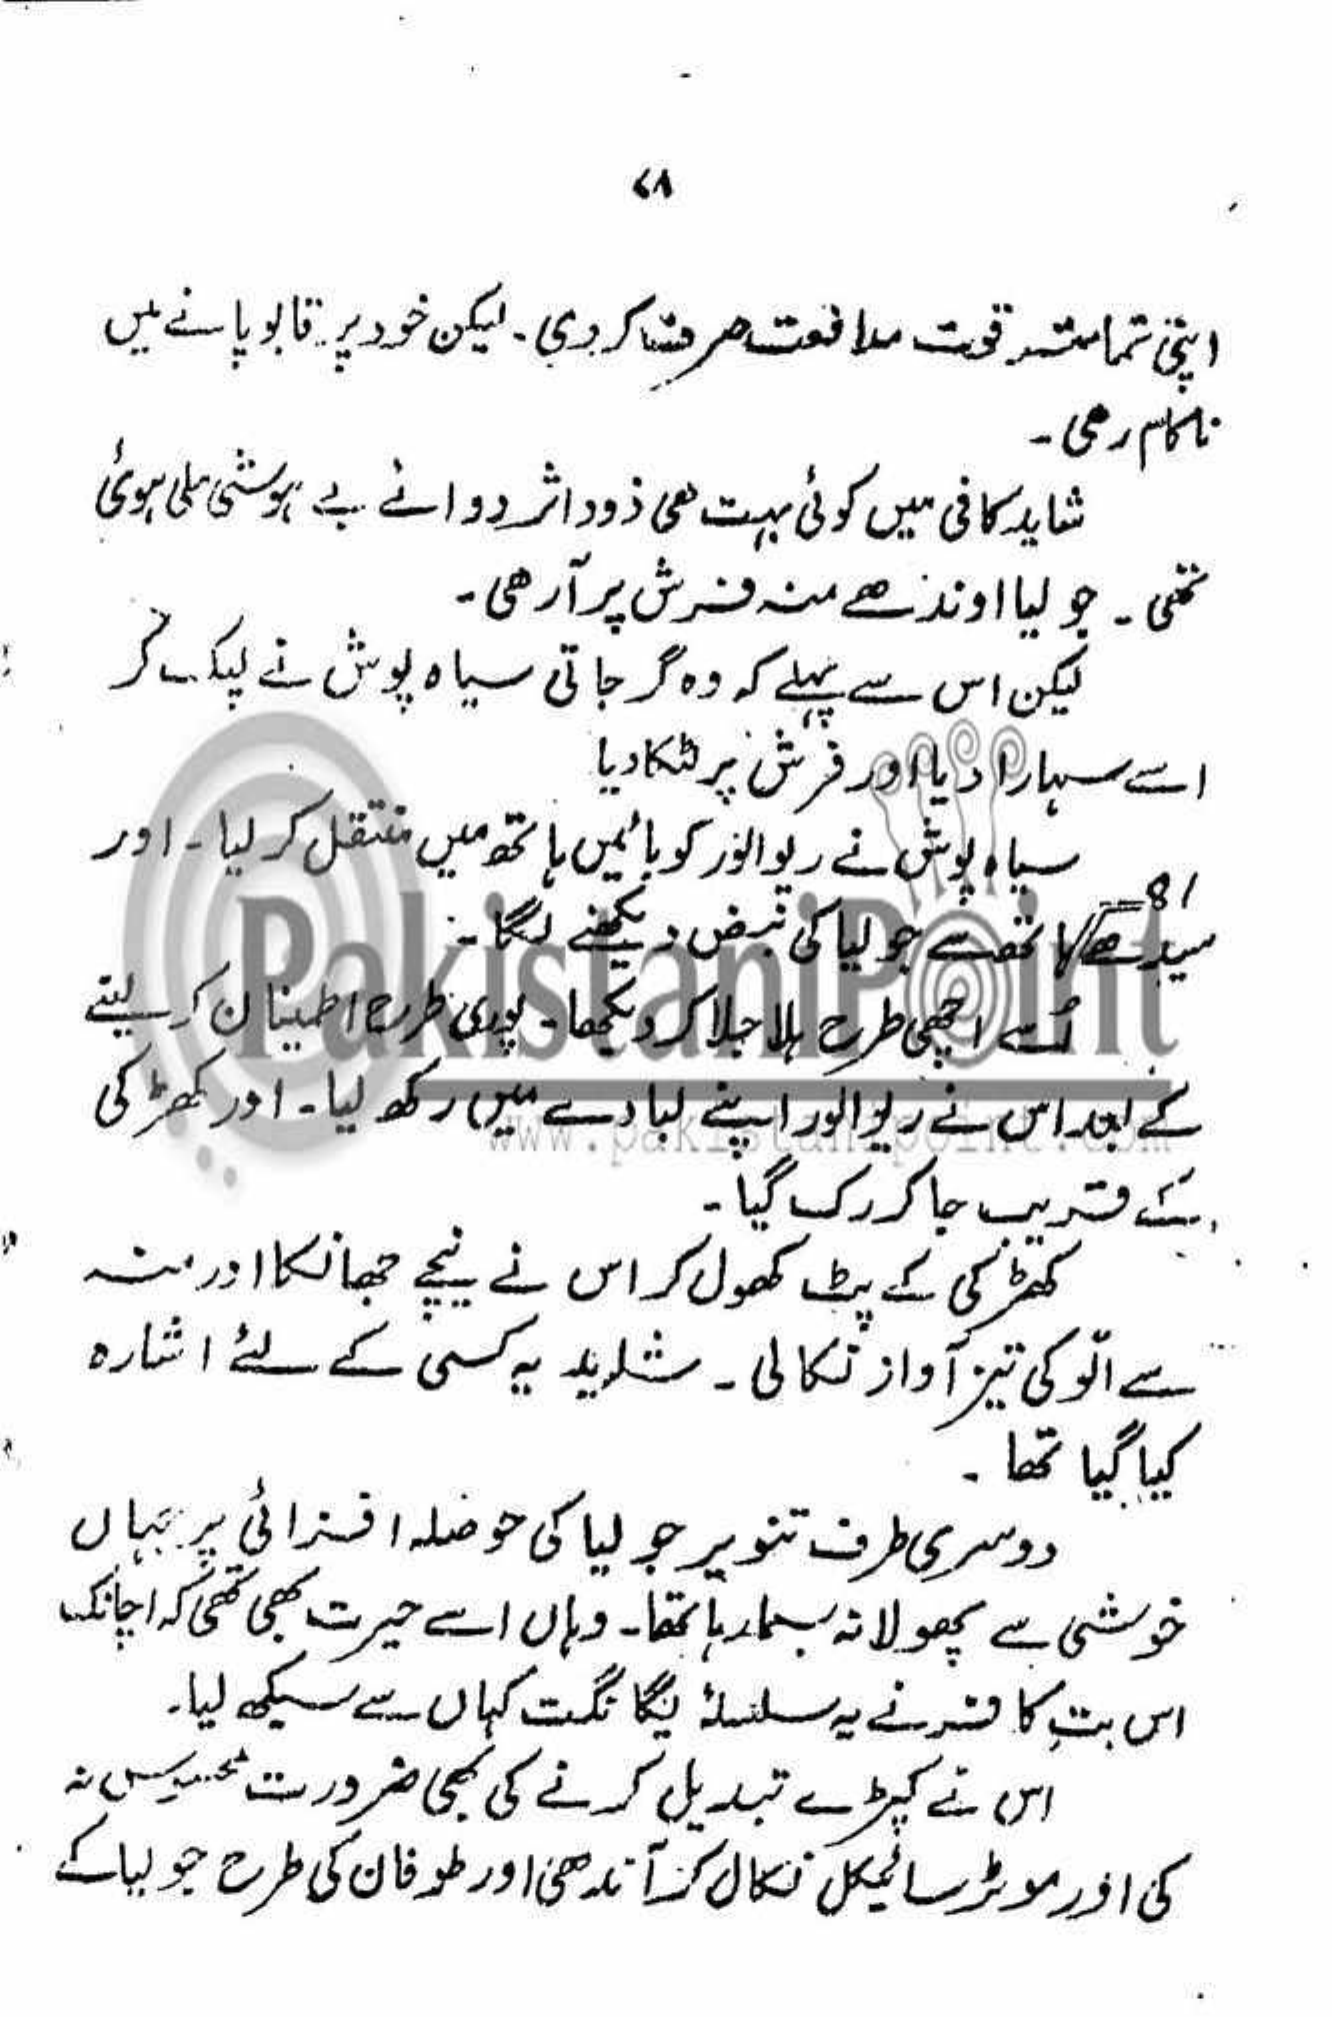 ۷۸
اپنی تمامتر قوت مدافعت صرف کر دی۔ لیکن خود پر قابو پانے میں
ناکام رہی۔
شاید کافی میں کوئی بہت ہی ذود اثر دوائے بے ہوشی ملی ہوئی
تھی۔ جولیا اوندھے منہ فرش پر آرہی۔
لیکن اس سے پہلے کہ وہ گر جاتی سیاہ پوش نے لپک کر
اسے سہارا دیا اور فرش پر لٹکا دیا
سیاہ پوش نے ریوالور کو بائیں ہاتھ میں منتقل کر لیا۔ اور
81
سیدھے ہاتھ سے جولیا کی نبض دیکھنے لگا۔
اُسے اچھی طرح ہلا جلا کر دیکھا۔ پوری طرح اطینان کر لینے
کے بعد اس نے ریوالور اپنے لبادے میں رکھ لیا۔ اور کھڑکی
کے قریب جا کر رک گیا۔
کھڑکی کے پٹ کھول کر اس نے نیچے جھانکا اور منہ
سے الّو کی تیز آواز نکالی۔ شاید یہ کسی کے لئے اشارہ
کیا گیا تھا۔
دوسری طرف تنویر جولیا کی حوصلہ افزائی پر جہاں
خوشی سے پھولا نہ سما رہا تھا۔ وہاں اسے حیرت بھی تھی کہ اچانک
اس بتِ کافر نے یہ سلسلۂ یگانگت کہاں سے سیکھ لیا۔
اس نے کپڑے تبدیل کرنے کی بھی ضرورت محسوس نہ
کی اور موٹر سائیکل نکال کر آندھی اور طوفان کی طرح جولیا کے
PakistaniPoint
www.pakistanipoint.com